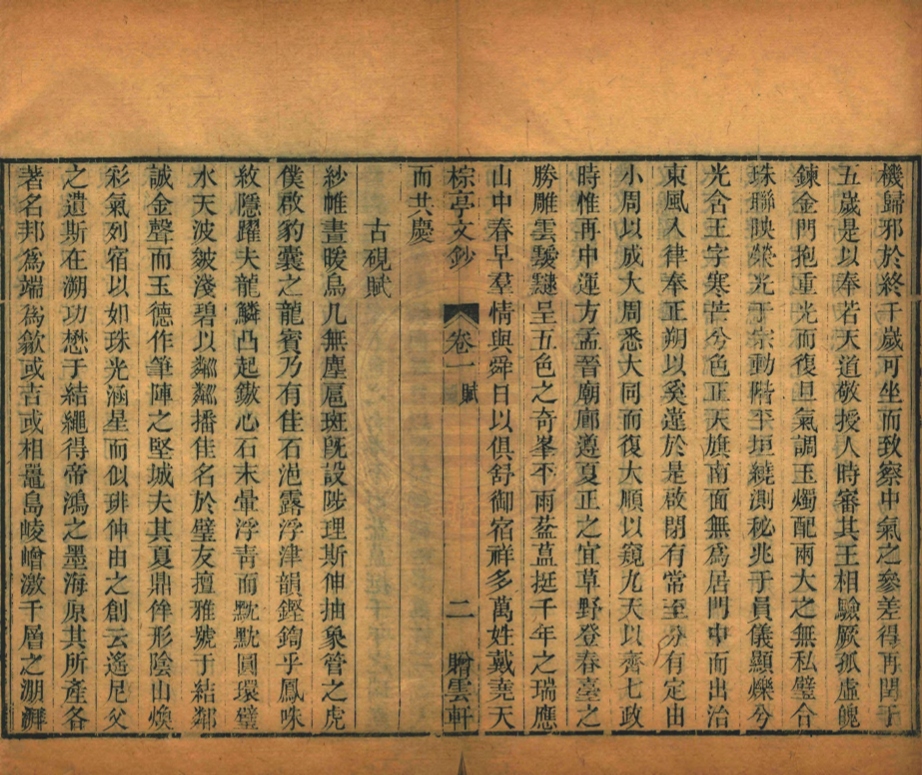 機歸邪於終千歲可坐而致察中氣之參差得再閏于
五歲是以奉若天道敬授人時審其王相驗厥孤虛魄
鍊金門抱重光而復旦氣調玉燭配兩大之無私璧合
珠聯映榮光于宗動階平垣繞測秘兆于員儀顯爍兮
光含王字寒芒兮色正天旗南面無為居門中而出治
東風入律奉正朔以奚違於是啟閉有常至分有定由
小周以成大周悉大同而復大順以窺九天以齊七政
時惟再中運方孟晉廟廊遵夏正之宜草野登春臺之
勝雕雲靉靆呈五色之奇峯平雨葢蒀挺千年之瑞應
山中春早羣情與舜日以俱舒御宿祥多萬姓戴堯天
棕亭文鈔 卷一 賦 二 贈雲軒
而共慶
古硯賦
紗帷晝暖烏几無塵扈斑旣設陟理斯伸抽象管之虎
僕啟豹囊之龍賓乃有佳石浥露浮津韻鏗鍧乎鳳咮
紋隱躍夫龍鱗凸起鏾心石末暈浮靑而黕黕圓環璧
水天波皴淺碧以粼粼播佳名於璧友擅雅號于結鄰
誠金聲而玉德作筆陣之堅城夫其夏鼎侔形陰山煥
彩氣列宿以如珠光涵星而似琲仲由之創云遙尼父
之遺斯在溯功懋于結繩得帝鴻之墨海原其所產各
著名邦為端為歙或吉或相鼉島崚嶒激千層之淜湃